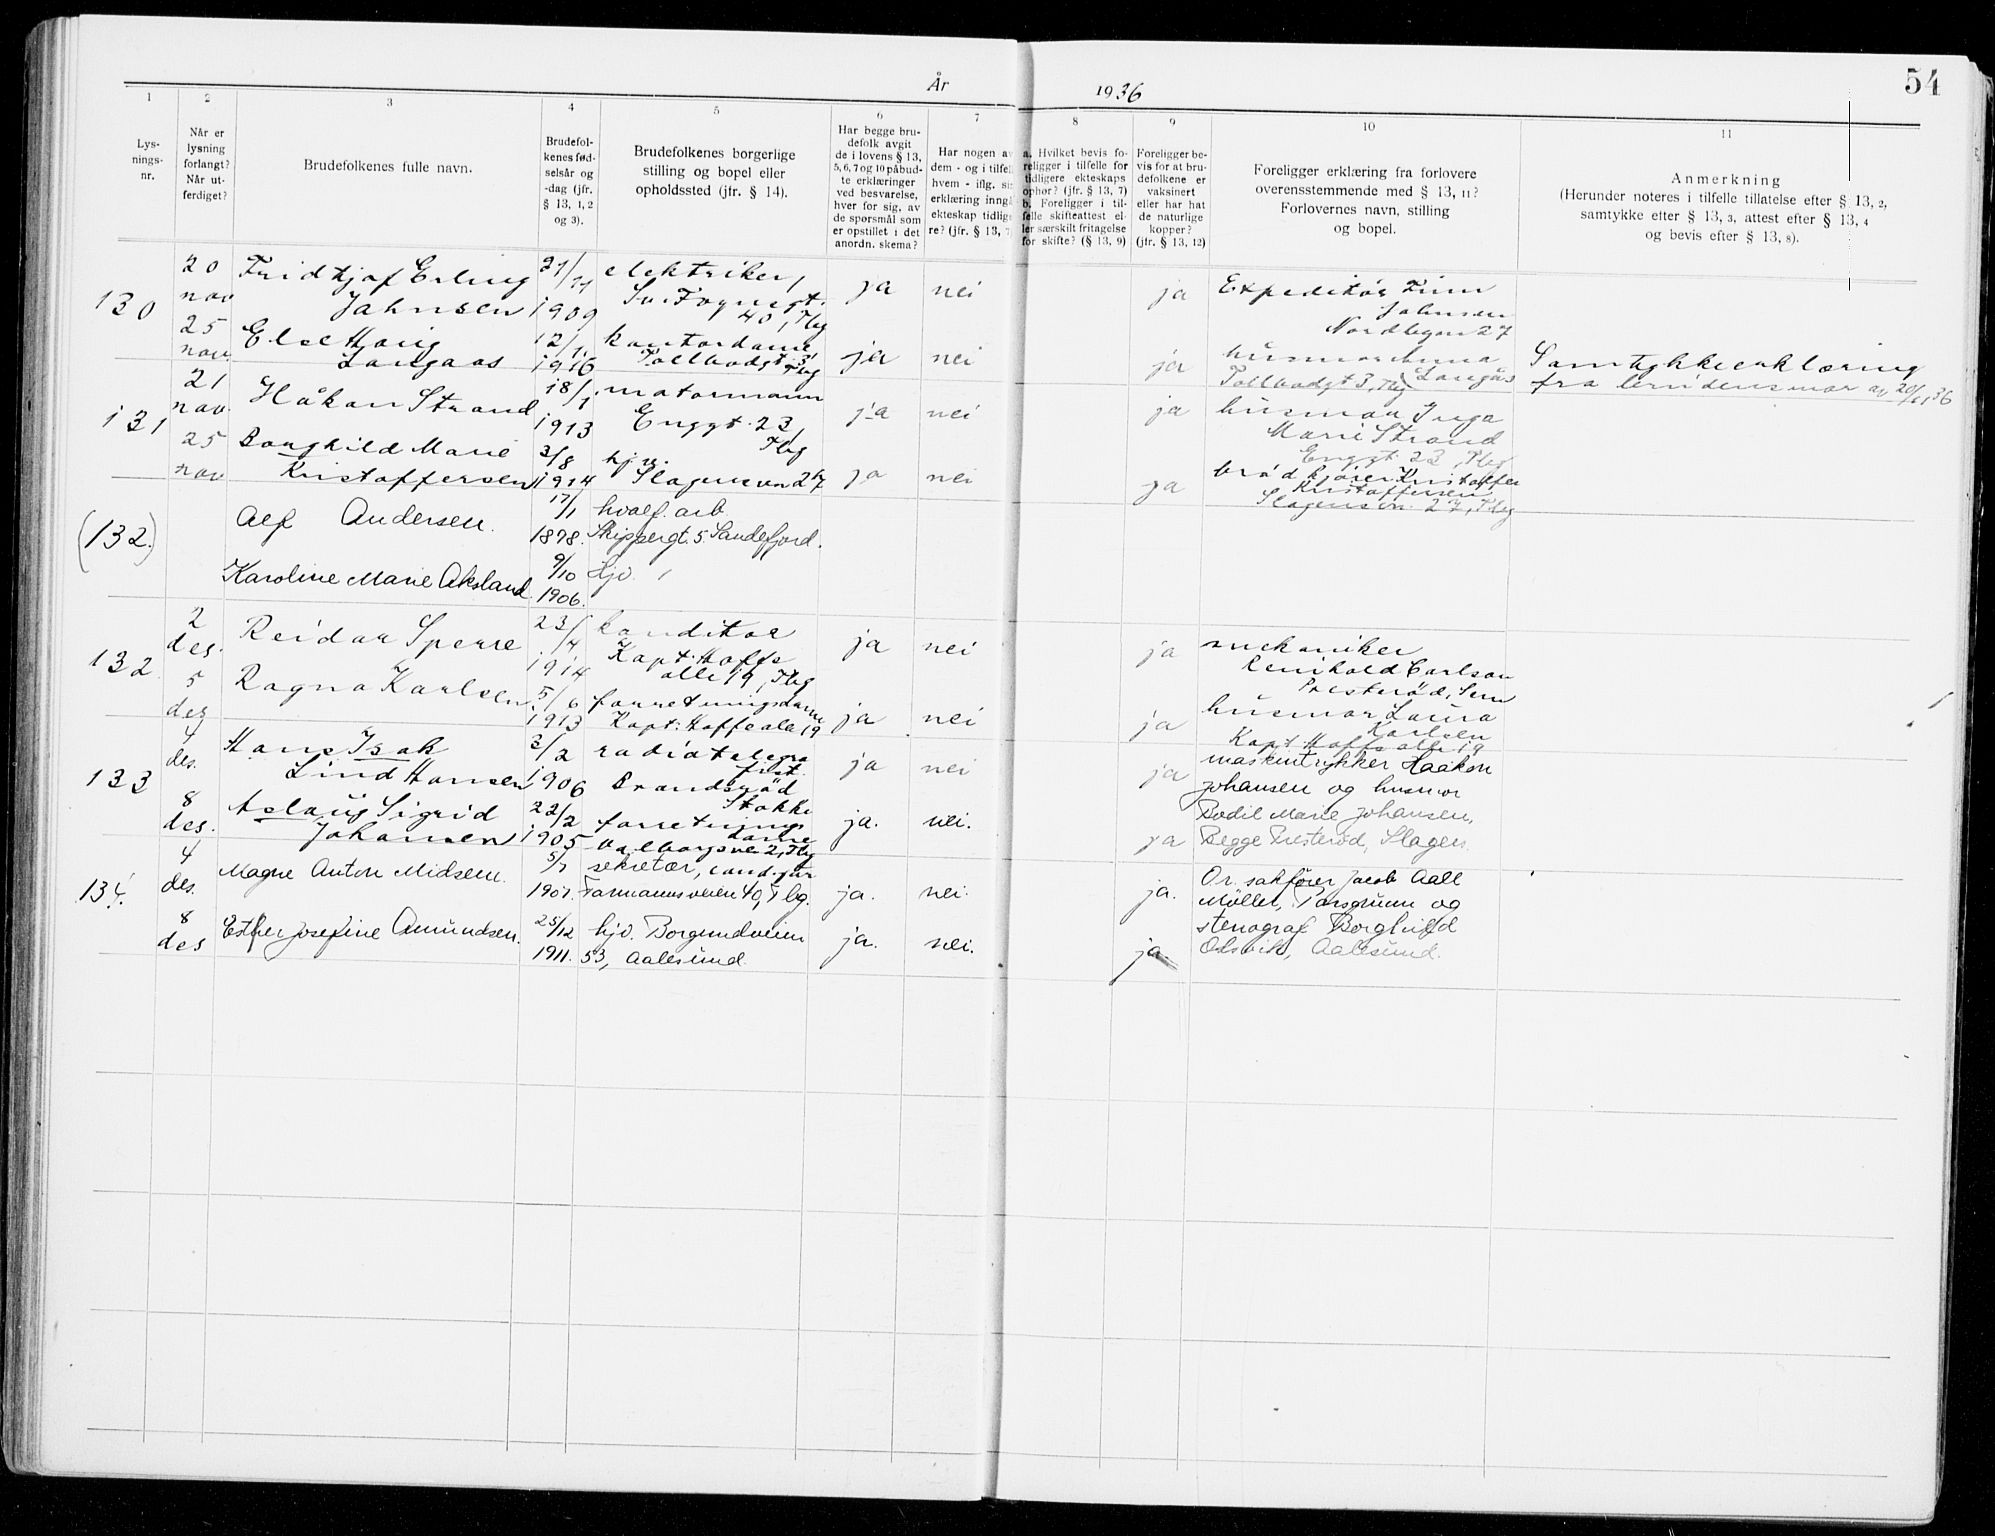 År 1936
54
1 2 3 4 5 6 7 8 9 10 11
Lys-
nings-
nr.
Når er
lysning
forlangt?
Når ut-
ferdiget?
Brudefolkenes fulle navn.
Brudefol-
kenes fød-
selsår og
-dag (jfr.
§ 13, 1, 2
og 3).
Brudefolkenes borgerlige
stilling og bopel eller
opholdssted (jfr. § 14).
Har begge bru-
defolk avgit
de i lovens § 13,
5, 6, 7 og 10 påbud-
te erklæringer
ved besvarelse,
hver for sig, av
de spørsmål som
er opstillet i det
anordn. skema?
Har nogen av
dem - og i tilfelle
hvem - iflg. sin
erklæring inngå
ekteskap tidlige
re? (jfr. § 13, 7
a. Hvilket bevis fo-
religger i tilfelle for
tidligere ekteskaps
ophør? (jfr. § 13, 7)
b. Foreligger i til-
felle skifteattest el-
ler særskilt fritagelse
for skifte? (§ 13, 9)
Foreligger be-
vis for at bru-
defolkene er
vaksinert
eller har hat
de naturlige
kopper?
(jfr. § 13, 12)
Foreligger erklæring fra forlovere
overensstemmende med § 13, 11?
Forlovernes navn, stilling
og bopel.
Anmerkning
(Herunder noteres i tilfelle tillatelse efter § 13, 2,
samtykke efter § 13, 3, attest efter § 13, 4
og bevis efter § 13, 8).
130
20
nov
Fridtjof Erling
Jahnsen
1909
elektriker,
40, Tbg
ja nei ja
Expeditør Finn
Jahnsen
Nordbyen 27
25
nov.
Else
Langaas
12/1
1916
kontordame
Tollbodgt. 3
Tbg
ja nei ja
husmor Anna
Langås
Tollbodgt 3, Tbg
Samtykkeerklæring
fra
131
21
nov.
Håkon Strand
18/1
1913
motormann
Enggt. 23,
Tbg
ja nei ja
husmor Inga
Marie Strand
Enggt. 23, Tbg
25
nov
Borghild Marie
Kristoffersen
3/8
1914
hj.v.
Slagensvn 27
ja nei ja
brødkjører Kristoffer
Kristoffersen
Slagensvn. 27, Tbg
(132.)
Alf Andersen.
17/1
1878.
hvalf. arb.
Skippergt. 5. Sandefjord.
Karoline Marie Aksland.
9/10
1906.
Hjv.
132
2
des.
Reidar Sperre
23/4
1914
konditor
Kapt. Hoffs
alle 19, Tbg
ja nei ja
mekaniker
Reinhold Carlson
Presterød, Sem
5
des
Ragna Karlsen
5/6
1913
forretningsdame
Kapt. Hoffs alle 19
ja nei ja
husmor Laura
Karlsen
Kapt. Hoffs alle 19
133
4
des.
Hans Isak
Lind Hansen
3/2
1906
radiotelegra
fist.
Brandsrød
Stokke
ja nei ja
maskintrykker Haakon
Johansen og husmor
8
des.
Aslaug Sigrid
Johansen
22/2
1905
forretnings
dame
Valborgsvei 2, Tbg
ja. nei. ja
Bodil Marie Johansen,
Begge Presterød, Slagen.
134.
4
des.
Magne Anton Midsem.
5/7
1907.
sekretær, cand. jur
Farmannsveien 40, Tbg.
ja. nei. ja.
Or. sakfører Jacob Aall
Møller, Porsgrunn og
8
des
Esther Josefine Amundsen.
25/12
1911.
hjv. Borgundveien
53, Aalesund.
ja. nei. ja.
stenograf Borghild
Osvik, Aalesund.